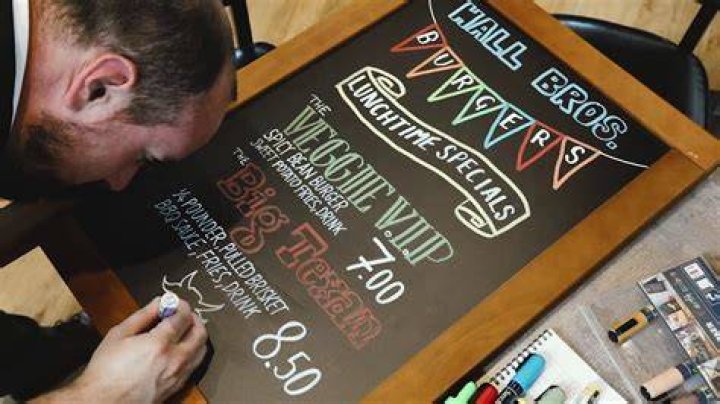 WALL BROS.
BURGERS
LUNCHTIME SPECIALS
THE
VEGGIE V.I.P
SPICY BEAN BURGER
SWEET POTATO FRIES, DRINK
7.00
THE
Big Texan
¼ POUNDER, PULLED BRISKET
BBQ SAUCE, FRIES, DRINK
8.50